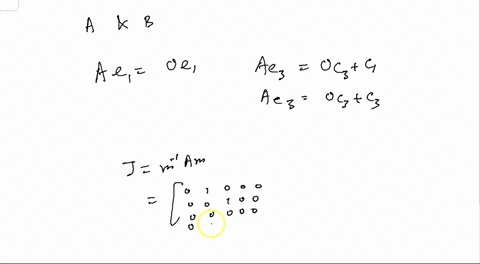 A & B
Ae₁ = 0e₁
Ae₃ = 0C₃ + C₁
Ae₃ = 0C₃ + C₃
J = m⁻¹ A m
= [ 0 1 0 0 0
0 0 1 0 0
0 0 0 0 0
0